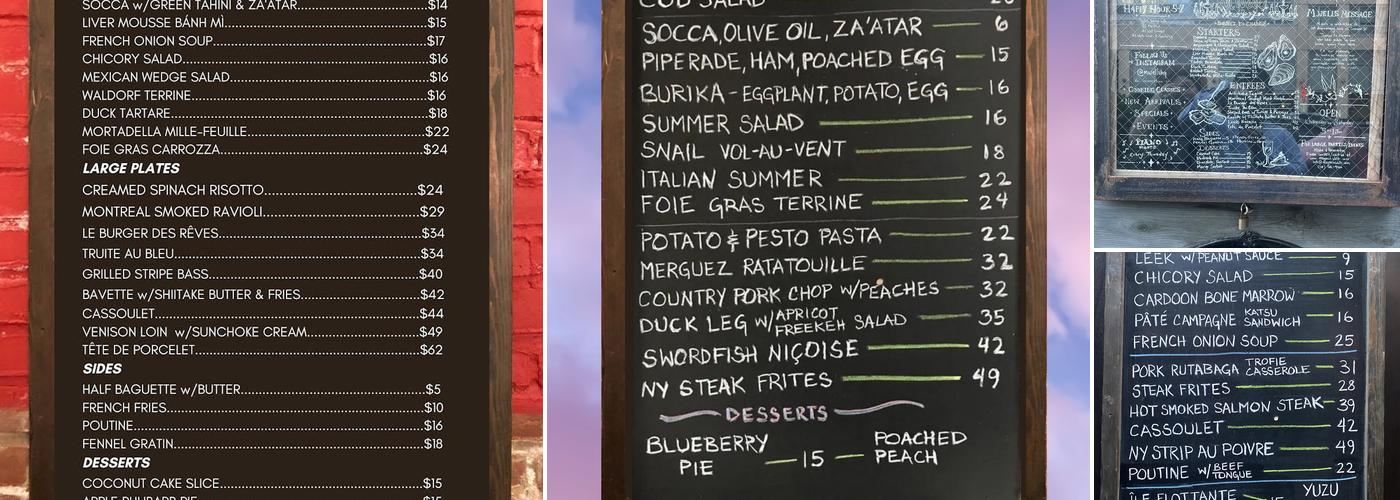 SOCCA w/GREEN TAHINI & ZA'ATAR $14
LIVER MOUSSE BÁNH MÌ $15
FRENCH ONION SOUP $17
CHICORY SALAD $16
MEXICAN WEDGE SALAD $16
WALDORF TERRINE $16
DUCK TARTARE $18
MORTADELLA MILLE-FEUILLE $22
FOIE GRAS CARROZZA $24
LARGE PLATES
CREAMED SPINACH RISOTTO $24
MONTREAL SMOKED RAVIOLI $29
LE BURGER DES RÊVES $34
TRUITE AU BLEU $34
GRILLED STRIPE BASS $40
BAVETTE w/SHIITAKE BUTTER & FRIES $42
CASSOULET $44
VENISON LOIN w/SUNCHOKE CREAM $49
TÊTE DE PORCELET $62
SIDES
HALF BAGUETTE w/BUTTER $5
FRENCH FRIES $10
POUTINE $16
FENNEL GRATIN $18
DESSERTS
COCONUT CAKE SLICE $15
APPLE RHUBARB PIE $15
COD SALAD
SOCCA, OLIVE OIL, ZA'ATAR 6
PIPERADE, HAM, POACHED EGG — 15
BURIKA - EGGPLANT, POTATO, EGG — 16
SUMMER SALAD — 16
SNAIL VOL-AU-VENT — 18
ITALIAN SUMMER — 22
FOIE GRAS TERRINE — 24
POTATO & PESTO PASTA — 22
MERGUEZ RATATOUILLE — 32
COUNTRY PORK CHOP W/PEACHES — 32
DUCK LEG W/APRICOT FREEKEH SALAD — 35
SWORDFISH NIÇOISE — 42
NY STEAK FRITES — 49
DESSERTS
BLUEBERRY PIE — 15 — POACHED PEACH
HAPPY HOUR 5-7
STARTERS
FOLLOW US
INSTAGRAM
NEW ARRIVALS
SPECIALS
EVENTS
PIANO
ENTRÉES
SIDES
DESSERTS
MESSAGE
OPEN
LEEK W/PEANUT SAUCE 9
CHICORY SALAD — 15
CARDOON BONE MARROW — 16
PÂTÉ CAMPAGNE KATSU SANDWICH — 16
FRENCH ONION SOUP — 25
PORK RUTABAGA TROFIE CASSEROLE — 31
STEAK FRITES — 28
HOT SMOKED SALMON STEAK — 39
CASSOULET — 42
NY STRIP AU POIVRE — 49
POUTINE W/BEEF TONGUE — 22
ÎLE FLOTTANTE
YUZU